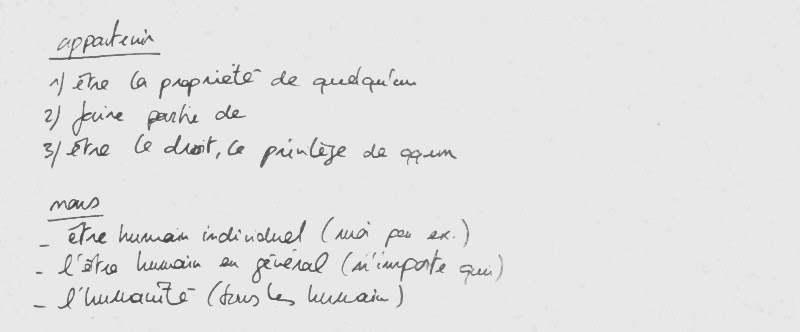 appartenir
1) être la propriété de quelqu'un
2) faire partie de
3) être le droit, le privilège de qqun
nous
- être humain individuel (moi par ex.)
- l'être humain en général (n'importe qui)
- l'humanité (tous les humain)